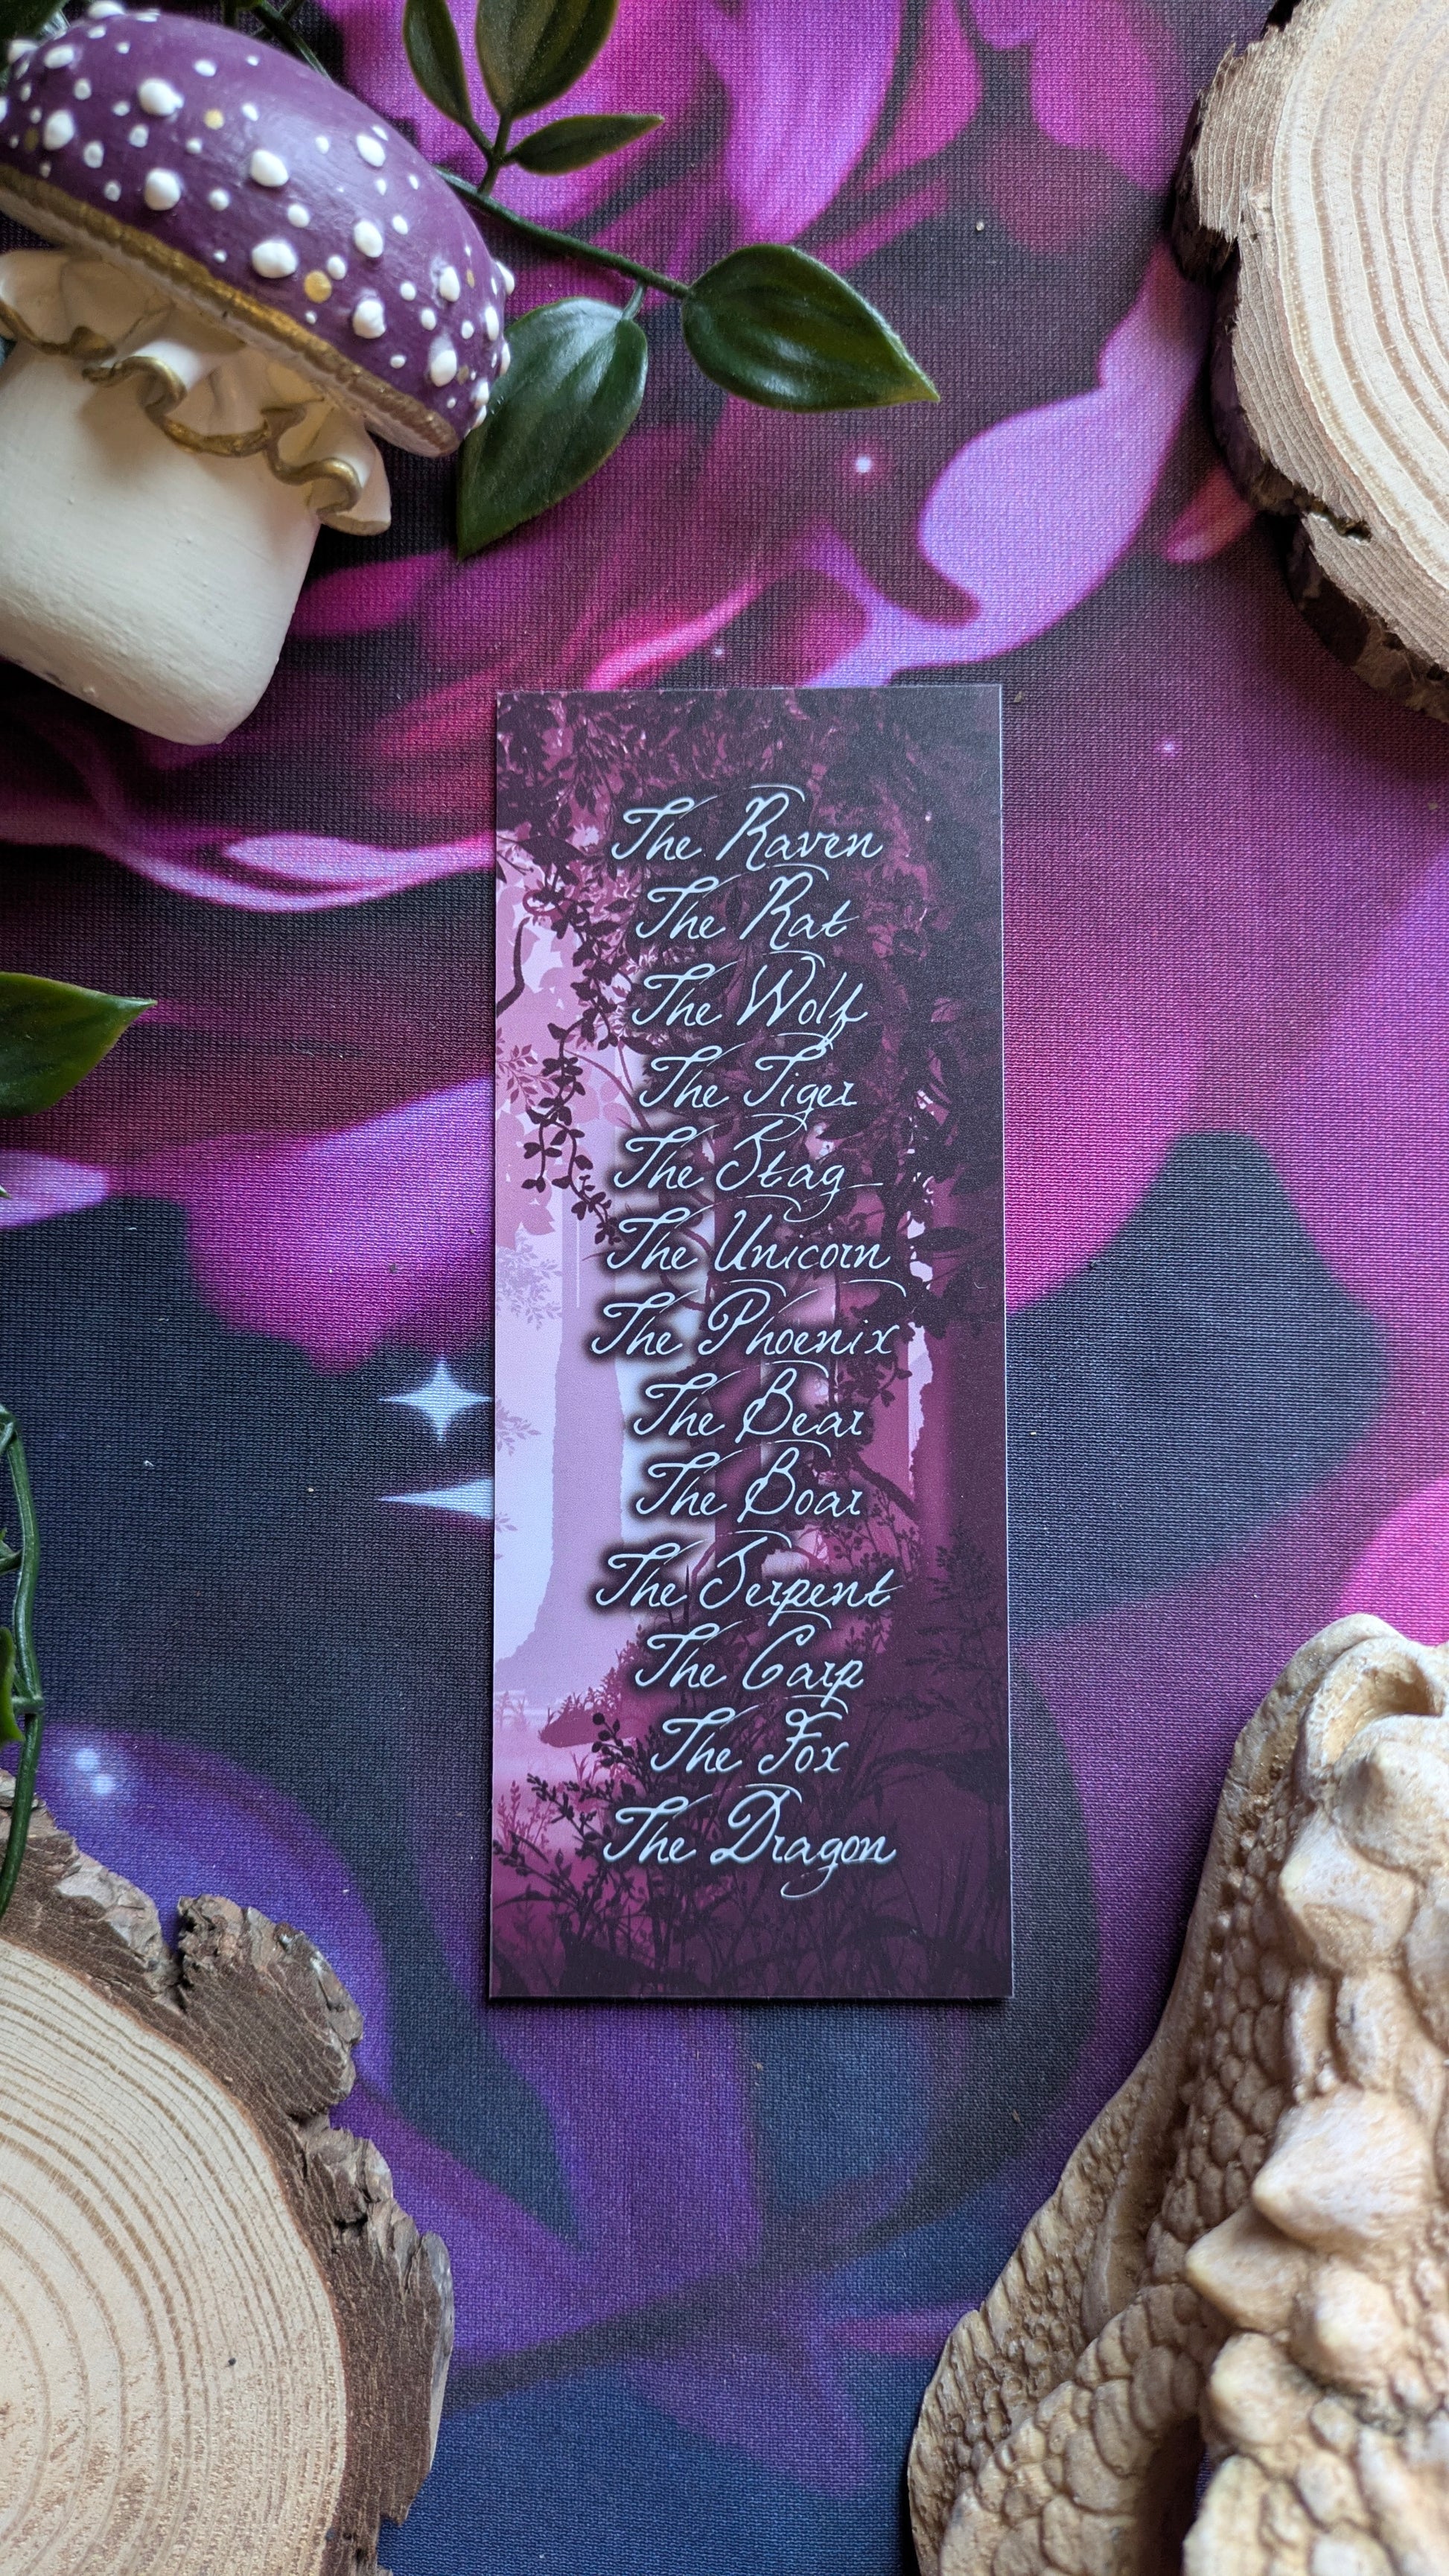 The Raven
The Rat
The Wolf
The Tiger
The Stag
The Unicorn
The Phoenix
The Bear
The Boar
The Serpent
The Carp
The Fox
The Dragon